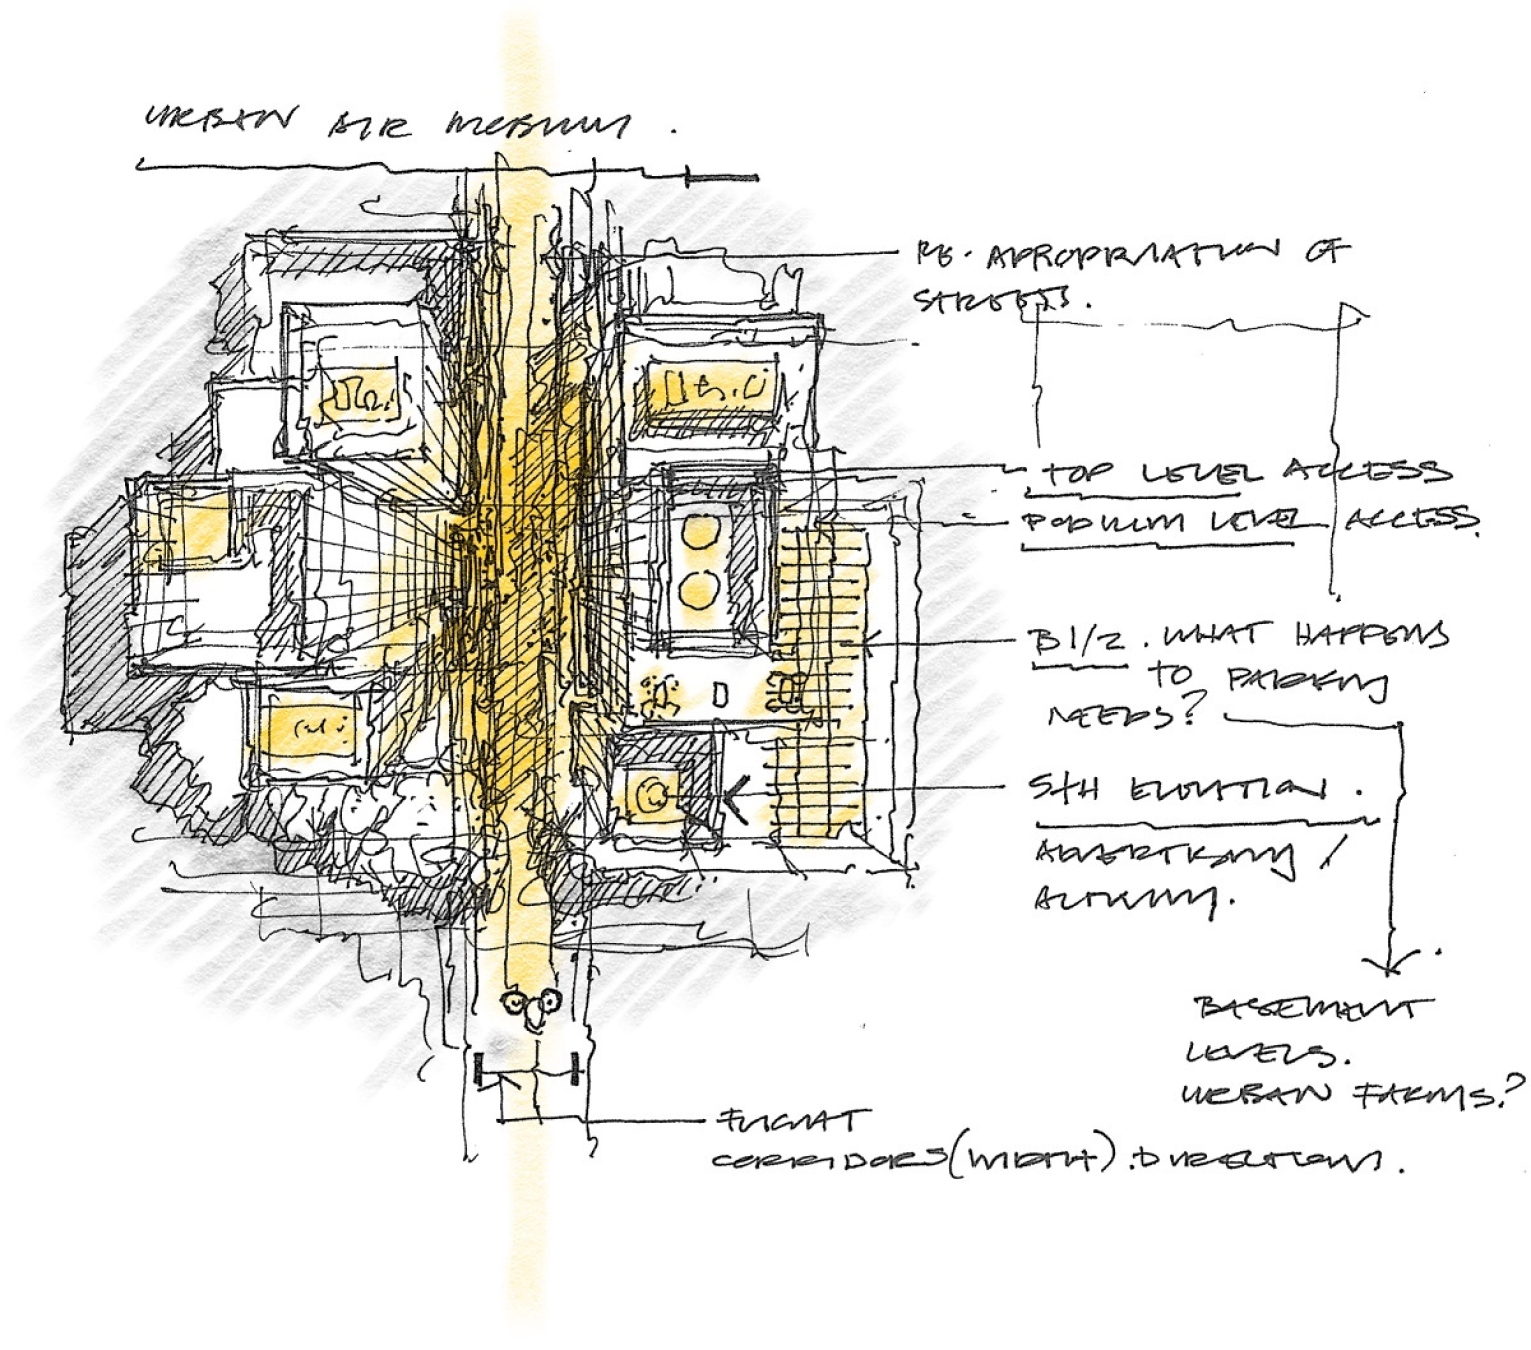 URBAN AIR MOBILITY.
RE-APROPRIATION OF
STREETS.
TOP LEVEL ACCESS
PODIUM LEVEL ACCESS.
B1/2. WHAT HAPPENS
TO PARKING
NEEDS?
5TH ELEVATION.
ADVERTISING /
BASEMENT
LEVELS.
URBAN FARMS?
FLIGHT
CORRIDORS (WIDTH). DIRECTIONS.